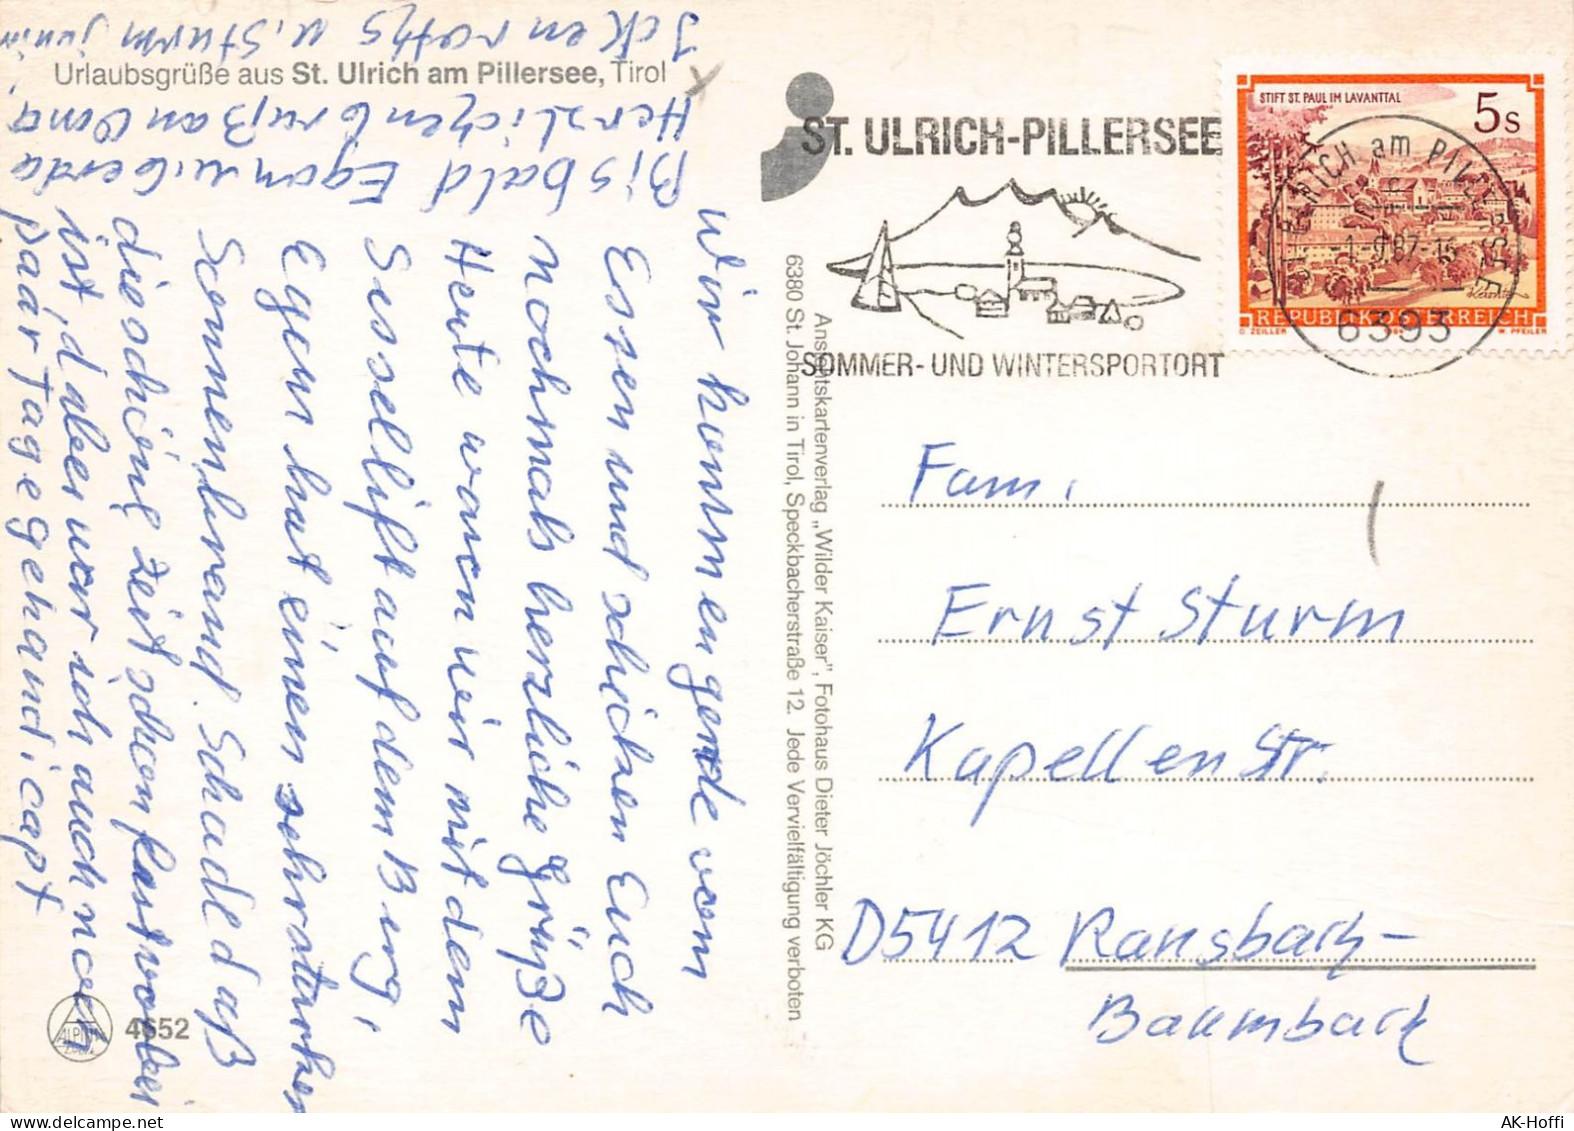 Urlaubsgrüße aus St. Ulrich am Pillersee, Tirol
Wir kommen gerade vom
Essen und schicken Euch
nochmals herzliche Grüße
Heute waren wir mit dem
Sessellift auf dem Berg,
Egon hat einen sehr starken
Sonnenbrand. Schade daß
die schöne Zeit schon fast vorbei
ist, aber war ich auch noch
paar Tage gehandicapt
Bis bald Egon u. Gerda
Herzlichen Gruß an Oma
Ickenroths u. Sturm junior
Ansichtskartenverlag „Wilder Kaiser", Fotohaus Dieter Jöchler KG
6380 St. Johann in Tirol, Speckbacherstraße 12. Jede Vervielfältigung verboten
4652
ST. ULRICH-PILLERSEE
SOMMER- UND WINTERSPORTORT
STIFT ST. PAUL IM LAVANTTAL
5 S
REPUBLIK ÖSTERREICH
O. ZEILLER
W. PFEILER
ST. ULRICH am PILLERSEE
-1.-9.87-15
6393
Fam.
Ernst Sturm
Kapellenstr.
D5412 Ransbach-
Baumbach
AK-Hoffi